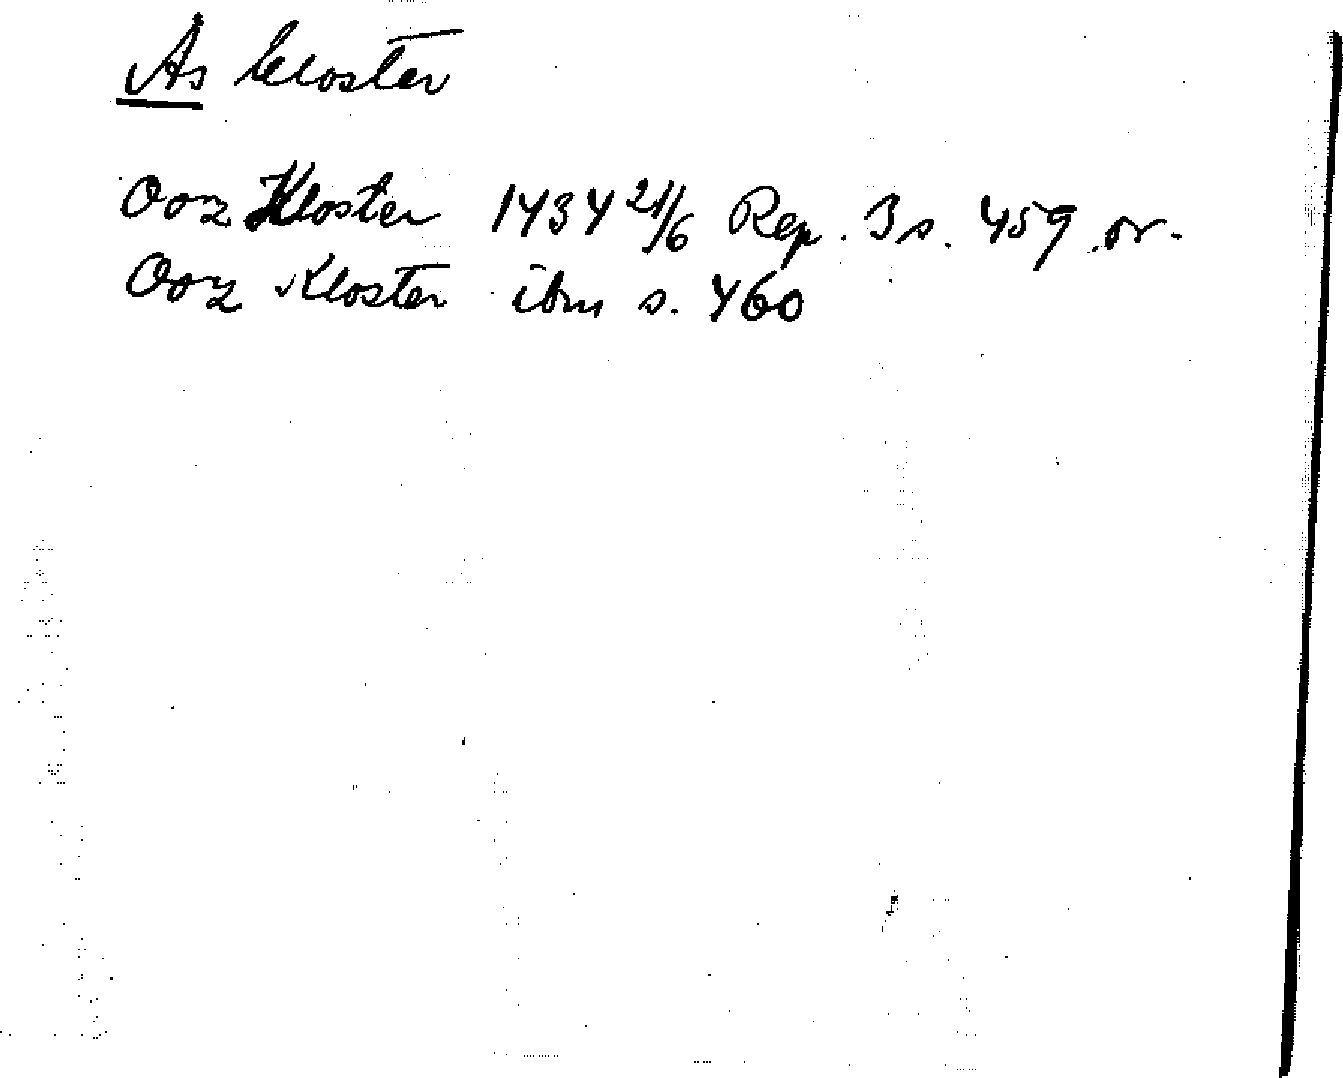 Ås kloster
Oorz Kloster 1434 21/6 Rep. 3 s. 459 or.
Oorz Kloster ibm s. 460